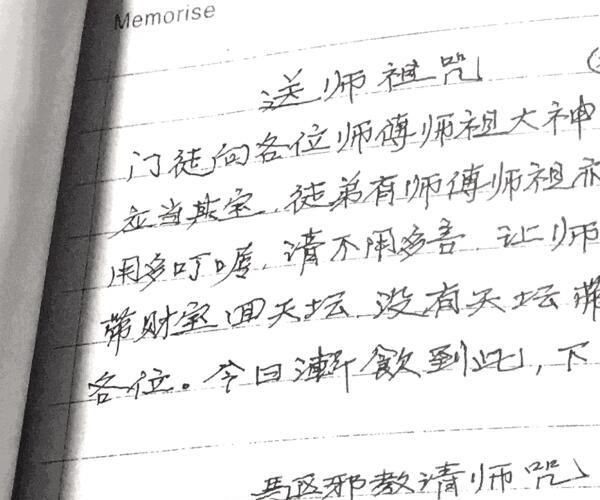 Memorise
送师祖咒
门徒向各位师傅师祖大神
应当其宝，徒弟有师傅师祖亦
用多叮嘱，请不用多吝，让师
带财宝回天坛，没有天坛带
各位。今日渐飲到此，下
驱邪教请师咒